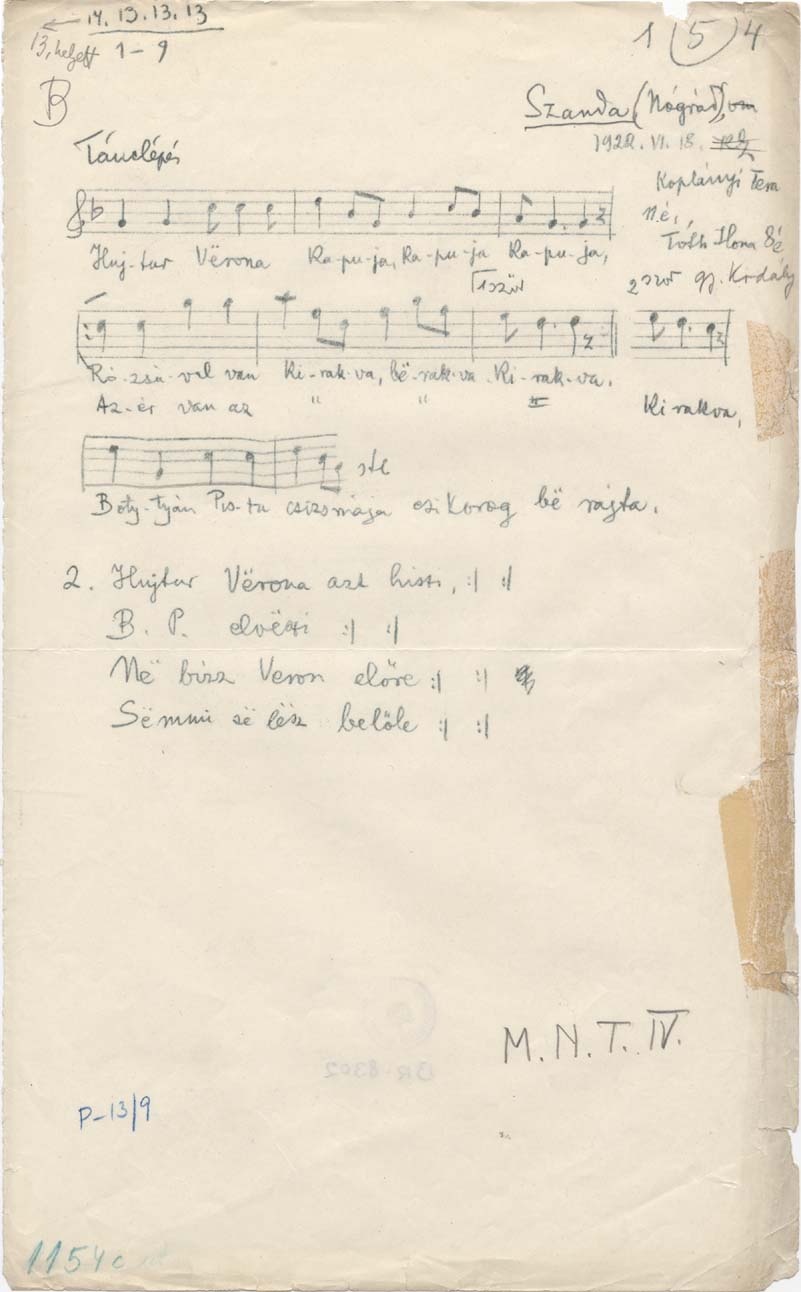 14. 13. 13. 13
13, helyett 1 – 9
1 (5) 4
B
Szanda (Nógrád),
1922. VI. 18.
Tánclépés
né,
Tóth Ilona
2szor gy. Király
Huj-tur Vërona Ka-pu-ja, Ka-pu-ja Ka-pu-ja,
1ször
Ró-zsá-val van Ki-rak-va, bë-rak-va Ki-rak-va.
Az-ér van az " " " Ki rakva,
stb
Boty-tyán Pis-ta csizsmája csikorog bë rajta.
2. Hujtur Vërona azt hiszi, :| :|
B. P. elvëszi :| :|
Në bízz Veron előre :| :|
Sëmmi së lësz belőle :| :|
BR-8302
M.N.T. IV.
P-13/9
1154c